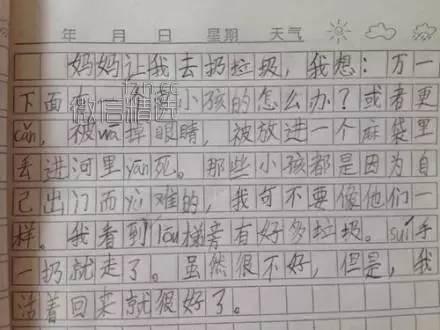 年 月 日 星期 天气
妈妈让我去扔垃圾，我想：万一
下面有 小孩的怎么办？或者更
微信精选
cǎn，被wā掉眼睛，被放进一个麻袋里
丢进河里yān死。那些小孩都是因为自
己出门而yù难的，我可不要像他们一
样。我看到lóu梯旁有好多垃圾。suí手
一扔就走了。虽然很不好，但是，我
活着回来就很好了。